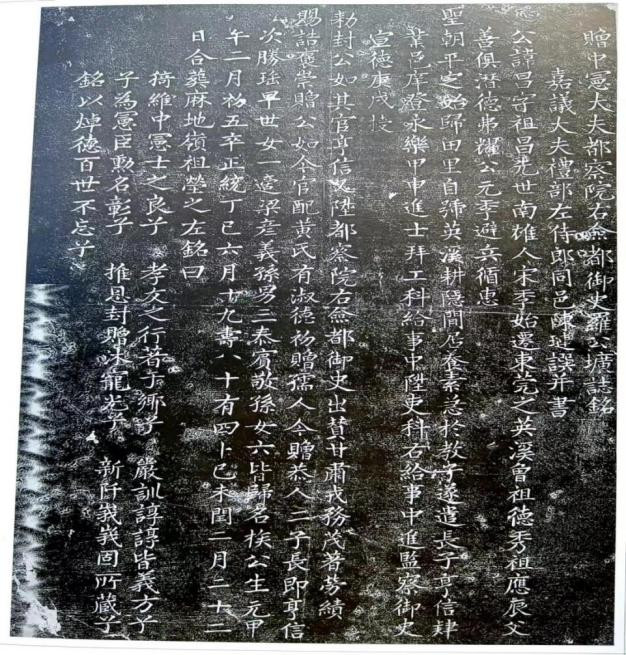 贈中憲大夫都察院右僉都御史羅公壙誌銘
嘉議大夫禮部左侍郎同邑陳璉譔并書
公諱昌字祖昌先世南雄人宋季始遷東莞之英溪曾祖德秀祖應辰父
善俱潛德弗耀公元季避兵循惠
聖朝平定始歸田里自號英溪耕隱閒居養素急於教子遂遣長子亨信肄
業邑庠登永樂甲申進士拜工科給事中陞吏科右給事中進監察御史
宣德庚戌授
勑封公如其官亨信又陞都察院右僉都御史出贊甘肅戎務茂著勞績
賜誥褒崇贈公如今官配黃氏有淑德初贈孺人今贈恭人二子長即亨信
次勝琮早世女一適梁彥義孫男三泰賓敬孫女六皆歸名族公生元甲
午二月初五卒正統丁巳六月十九壽八十有四卜己未閏二月二十二
日合葬麻地嶺祖塋之左銘曰
猗維中憲士之良子 孝友之行著于鄉子 嚴訓諄諄皆義方子
子為憲臣勲名彰子 推恩封贈沐寵光子 新阡峩峩固所藏子
銘以焯德百世不忘子